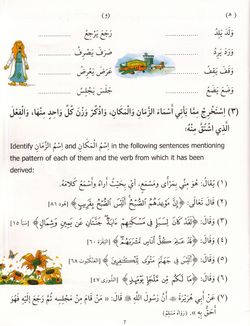 (٥)
(و)
وَلَدَ يَلِدُ
رَجَعَ يَرْجِعُ
وَرَدَ يَرِدُ
صَرَفَ يَصْرِفُ
وَقَفَ يَقِفُ
عَرَضَ يَعْرِضُ
وَضَعَ يَضَعُ
جَلَسَ يَجْلِسُ
(٣) اِسْتَخْرِجْ مِمَّا يَأْتِي أَسْمَاءَ الزَّمَانِ وَالْمَكَانِ، وَاذْكُرْ وَزْنَ كُلِّ وَاحِدٍ مِنْهَا، وَالْفِعْلَ
الَّذِي اشْتُقَّ مِنْهُ:
Identify اِسْمُ الْمَكَانِ and اِسْمُ الزَّمَانِ in the following sentences mentioning
the pattern of each of them and the verb from which it has been
derived:
(١) يُقَالُ: هُوَ مِنِّي بِمَرْأًى وَمَسْمَعٍ، أَيْ بِحَيْثُ أَرَاهُ وَأَسْمَعُ كَلَامَهُ.
(٢) قَالَ تَعَالَى: ﴿إِنَّ مَوْعِدَهُمُ الصُّبْحُ أَلَيْسَ الصُّبْحُ بِقَرِيبٍ﴾
(٣) قَالَ: ﴿لَقَدْ كَانَ لِسَبَإٍ فِي مَسْكَنِهِمْ آيَةٌ جَنَّتَانِ عَنْ يَمِينٍ وَشِمَالٍ﴾ [سبأ ١٥]
(٤) قَالَ: ﴿قَدْ عَلِمَ كُلُّ أُنَاسٍ مَشْرَبَهُمْ﴾ [البقرة ٦٠]
(٥) قَالَ: ﴿أَلَيْسَ فِي جَهَنَّمَ مَثْوًى لِلْكَافِرِينَ﴾ [العنكبوت ٦٨]
(٦) قَالَ: ﴿مَا لَكُمْ مِنْ مَلْجَإٍ يَوْمَئِذٍ﴾ [الشورى ٤٧]
(٧) عَنْ أَبِي هُرَيْرَةَ أَنَّ رَسُولَ اللَّهِ ﷺ قَالَ: «مَنْ قَامَ مِنْ مَجْلِسِهِ ثُمَّ رَجَعَ إِلَيْهِ فَهُوَ
أَحَقُّ بِهِ» (رَوَاهُ مُسْلِمٌ)